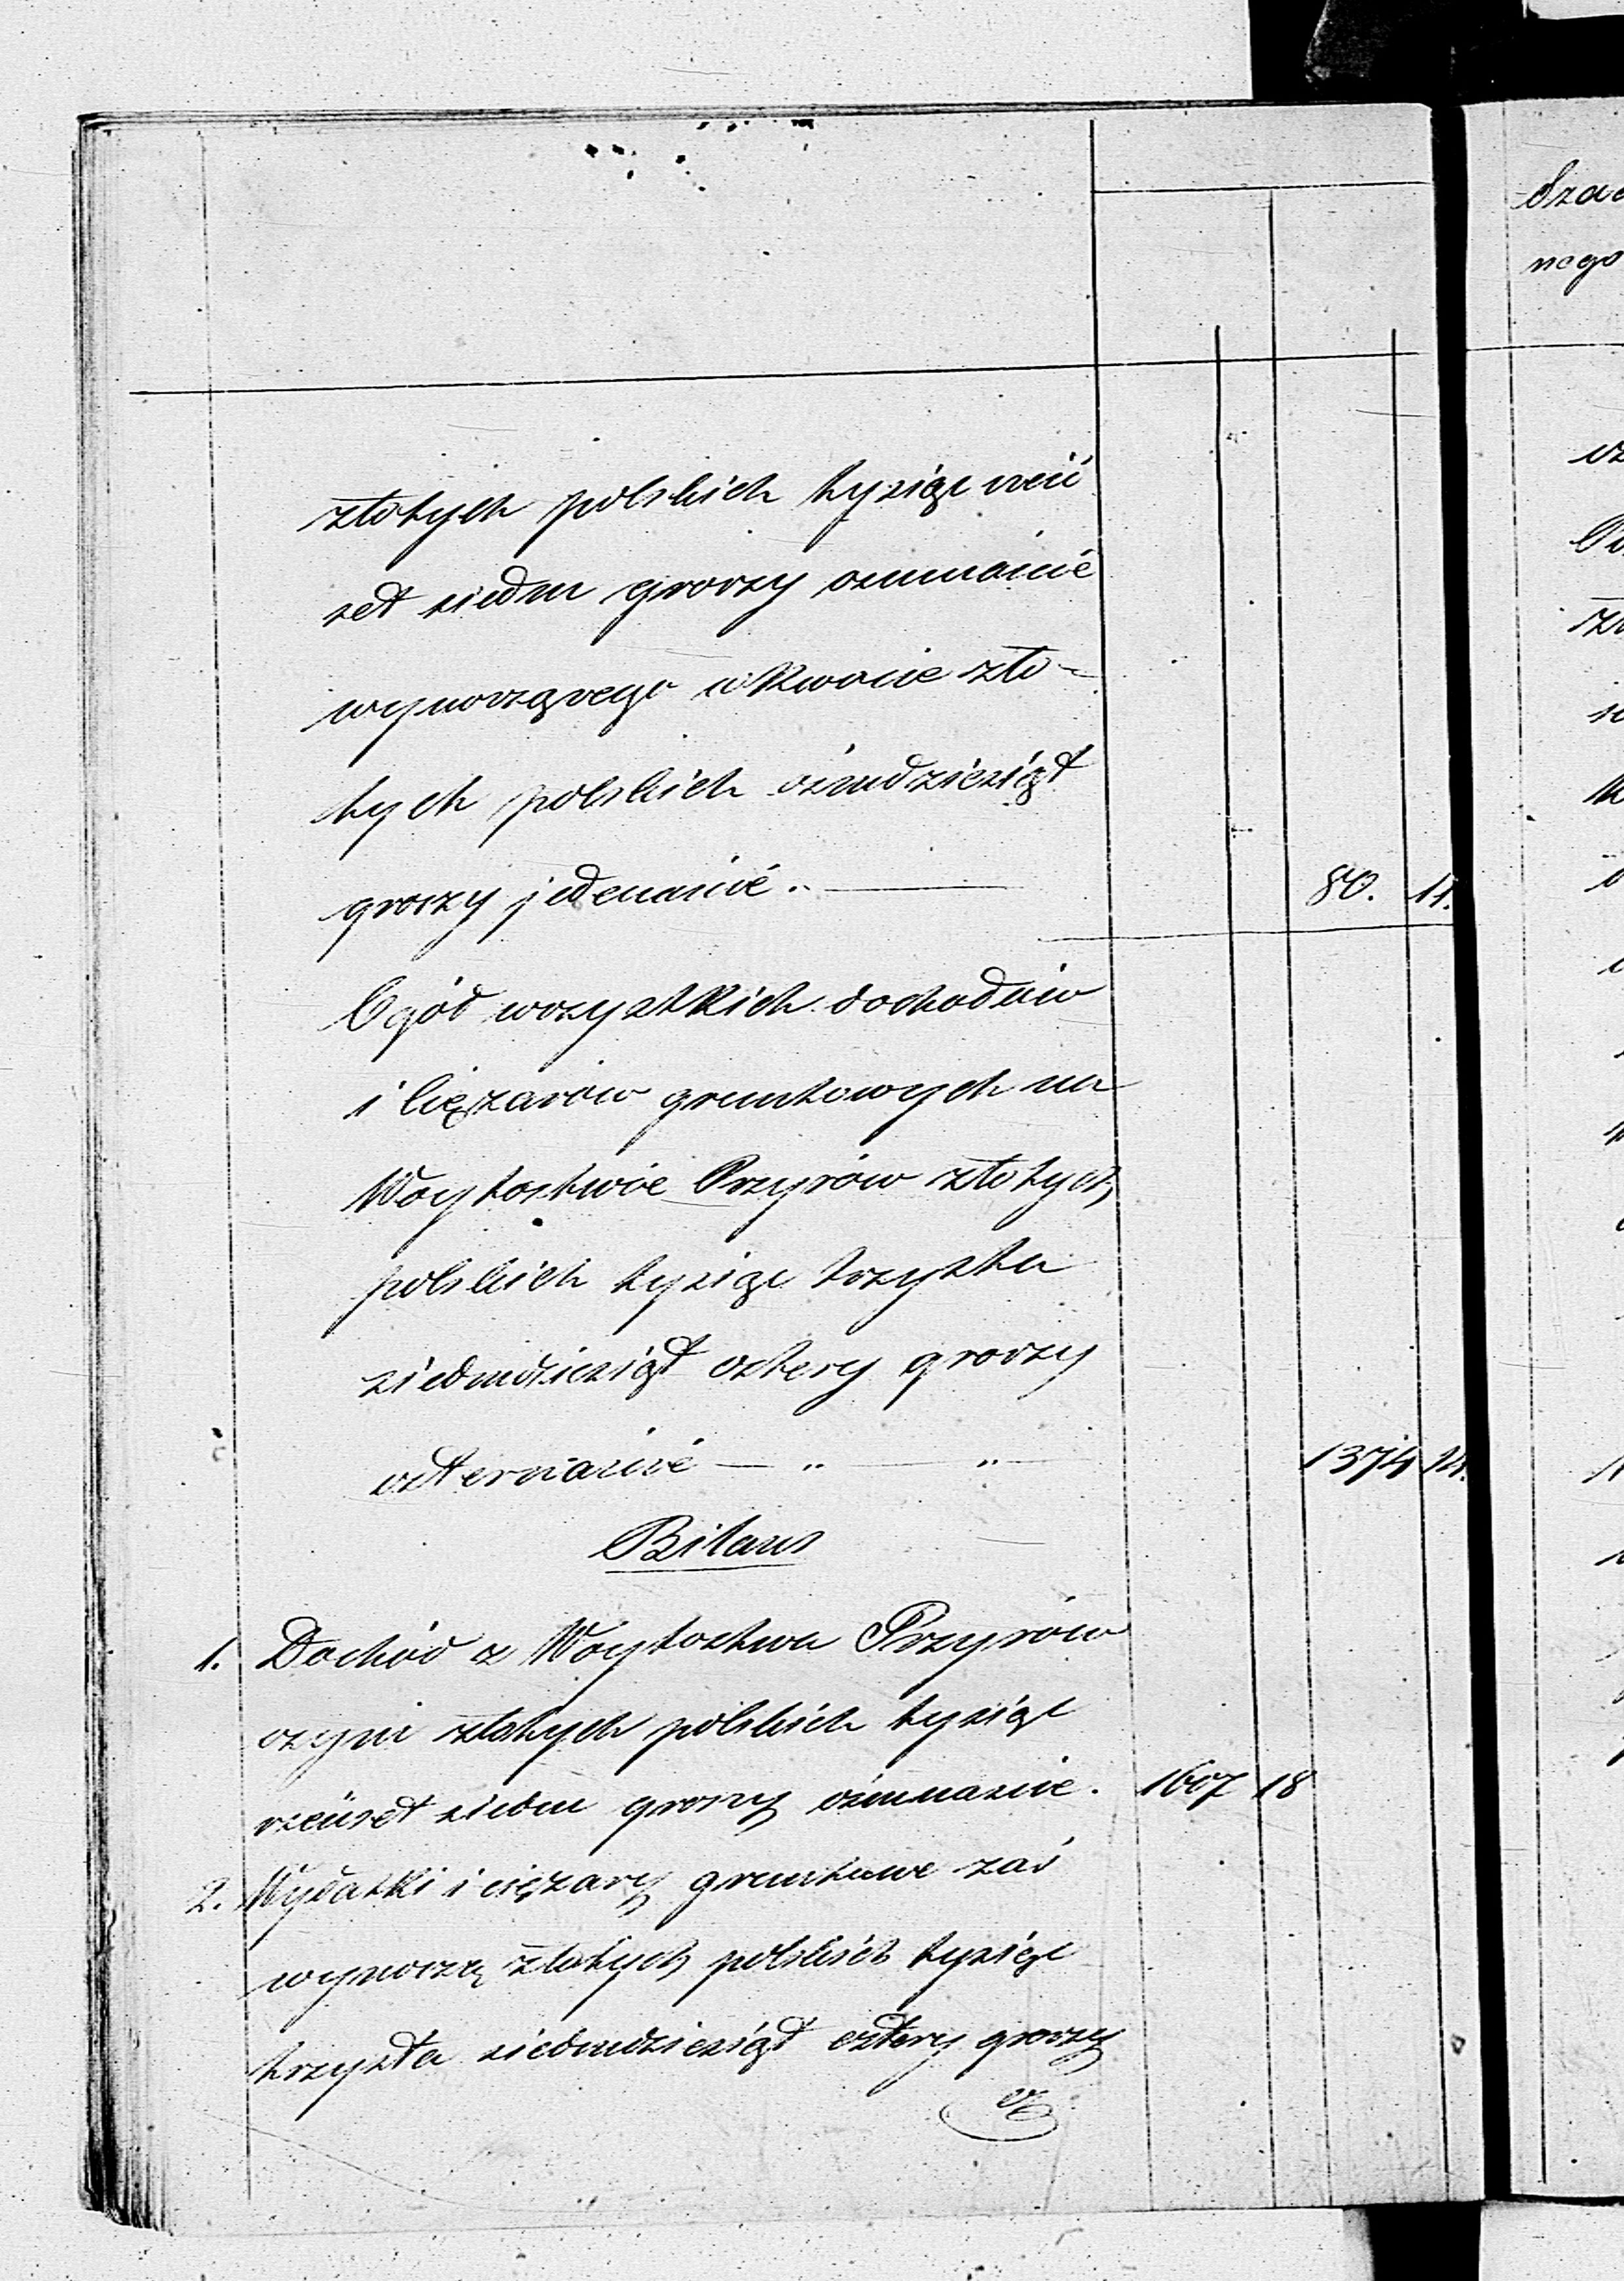 złotych polskich tysiąc sześć
set siedm groszy ośmnaście
wynoszącego w kwocie zło-
tych polskich ośmdziesiąt
groszy jedenaście. 80. 11.
Ogół wszystkich dochodów
i Ciężarów gruntowych na
Woytostwie Przyrów złotych
polskich tysiąc trzysta
siedmdziesiąt cztery groszy
czternaście — " — " — 1374 14.
Bilans
1. Dochód z Woytostwa Przyrów
czyni złotych polskich tysiąc
sześćset siedm groszy ośmnaście. 1607 18
2. Wydatki i ciężary gruntowe zaś
wynoszą złotych polskich tysiąc
trzysta siedmdziesiąt cztery groszy